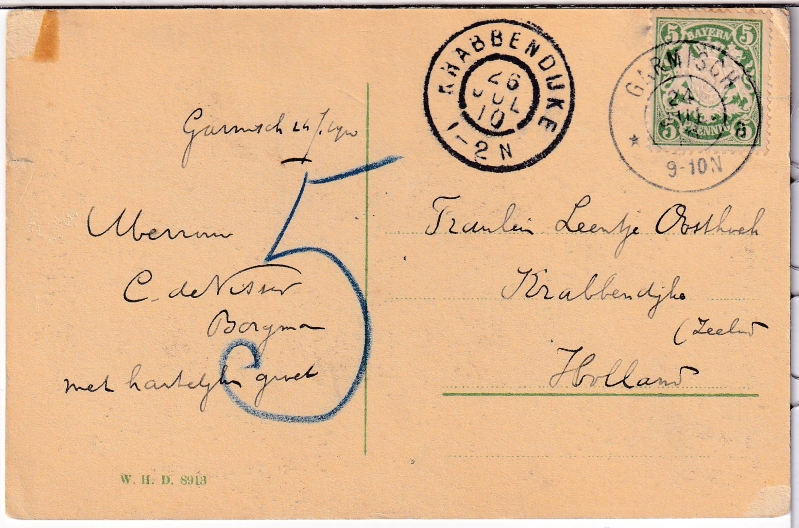 KRABBENDIJKE
26
JUL
10
1-2 N
BAYERN
5 5
5 PFENNIG
GARMISCH
24
9-10N
Garmisch
5
Mevrouw
C. de Visser
Borgman
met hartelijke groet
Fräulein Leentje Oosthoek
Krabbendijke
(Zeeland
Holland
W. H. D. 8913